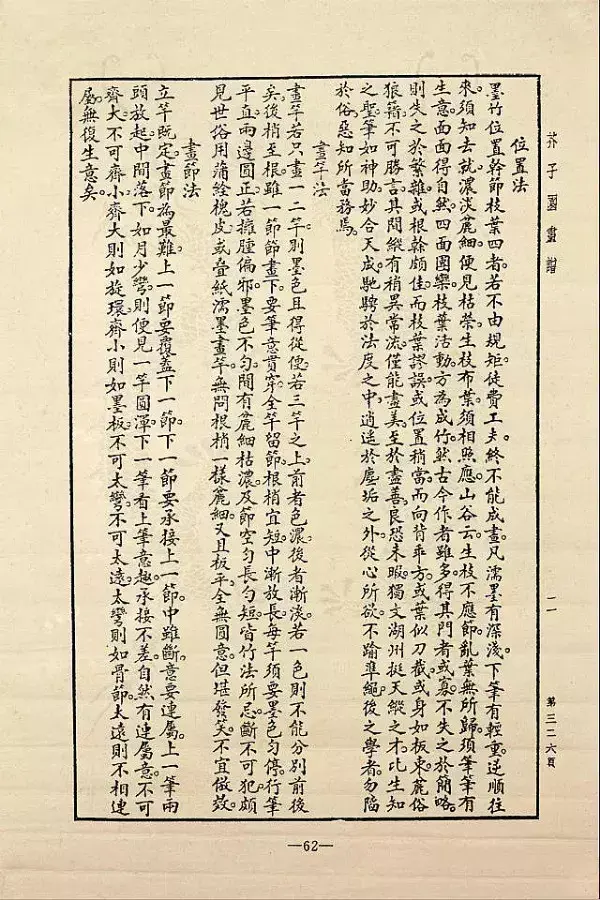 芥子園畫譜
第三二六頁
位置法
墨竹位置幹節枝葉四者。若不由規矩。徒費工夫。終不能成畫。凡濡墨有深淺。下筆有輕重。逆順往
來。須知去就。濃淡麄細。便見枯榮。生枝布葉。須相照應。山谷云。生枝不應節。亂葉無所歸。須筆筆有
生意。面面得自然。四面團欒。枝葉活動。方為成竹。然古今作者雖多。得其門者或寡。不失之於簡略。
則失之於繁雜。或根幹頗佳。而枝葉謬誤。或位置稍當。而向背乖方。或葉似刀截。或身如板束。麄俗
狼藉。不可勝言。其間縱有稍異常流。僅能盡美。至於盡善。良恐未暇。獨文湖州挺天縱之才。比生知
之聖。筆如神助。妙合天成。馳騁於法度之中。逍遙於塵垢之外。從心所欲。不踰準繩。後之學者。勿陷
於俗惡。知所當務焉。
畫竿法
畫竿若只畫一二竿。則墨色且得從便。若三竿之上。前者色濃。後者漸淡。若一色則不能分別前後
矣。後梢至根。雖一節節畫下。要筆意貫穿。全竿留節。根梢宜短。中漸放長。每竿須要墨色勻停。行筆
平直。兩邊圓正。若擁腫偏邪。墨色不勻。間有麄細枯濃。及節空勻長勻短。皆竹法所忌。斷不可犯。頗
見世俗用蒲絟槐皮。或疊紙濡墨畫竿。無問根梢一樣麄細。又且板平。全無圓意。但堪發笑。不宜倣效
畫節法
立竿既定。畫節為最難。上一節要覆蓋下一節。下一節要承接上一節。中雖斷。意要連屬。上一筆兩
頭放起。中間落下。如月少彎。則便見一竿圓渾。下一筆看上筆意趣。承接不差。自然有連屬意。不可
齊大。不可齊小。齊大則如旋環。齊小則如墨板。不可太彎。不可太遠。太彎則如骨節。太遠則不相連
屬。無復生意矣。
—62—